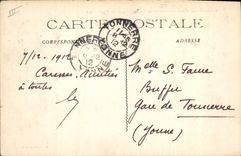 CARTE POSTALE
CORRESPONDANCE
ADRESSE
TONNERRE
YONNE
7/12 - 1912
Caresses Amitiés
à toutes
Melle S.
Buffet
Gare de Tonnerre
(Yonne)